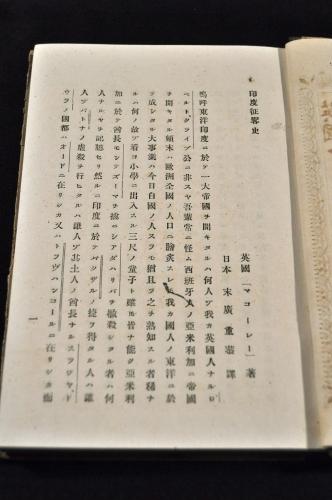 印度征略史
英國 「マコーレー」 著
日本 末廣重恭 譯
嗚呼東洋印度ニ於テ一大帝國ヲ開キタルハ何人ゾ我カ英國人ナルロ
ベルトクライブ公ニ非スヤ吾輩常ニ怪ム西班牙人ノ亞米利加ニ帝國
ヲ開キタル顛末ハ歐洲全國ノ人口ニ膾炙スレドモ我カ國人ノ東洋ニ於
テ成シタル大事業ハ今日自國ノ人スラモ猶且ツ之ヲ熟知スル者稀ナ
ルハ何ノ故ゾ看ヨ小學ニ出入スル三尺ノ童子ト雖モ皆ナ能ク亞米利
加ニ於テ酋長モンテズーマヲ擒ニシアダハリバヲ縊殺シタル者ハ何
人ナルヤヲ記臆セリ然ルニ印度ニ於テバクザルノ捷ヲ得タル人ハ誰
人ゾパトナノ虐殺ヲ行ヒタルハ誰人ゾ其土人ノ酋長ナルスラヂヤド
ウラノ國都ハオードニ在リシカ又ハトラヴハンコールニ在リシカ而
一